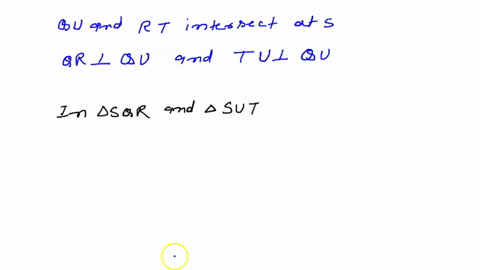 QU and RT intersect at S
QR ⊥ QU and TU ⊥ QU
In △SQR and △SUT